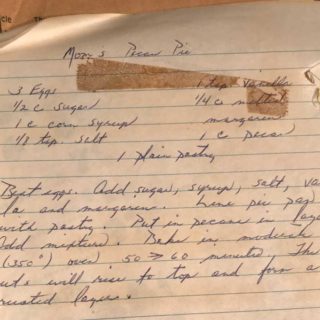 cle
Mom's Pecan Pie
3 Eggs 1 tsp. vanilla
1/2 c sugar 1/4 c melted
1 c corn syrup margarine
1/8 tsp. salt 1 c pecan
1 plain pastry
Beat eggs. Add sugar, syrup, salt, va
la and margarine. Line pie pan
with pastry. Put in pecans in laye
Add mixture. Bake in moderate
(350°) over 50 → 60 minutes, The
uts will rise to top and form a
rusted layer.